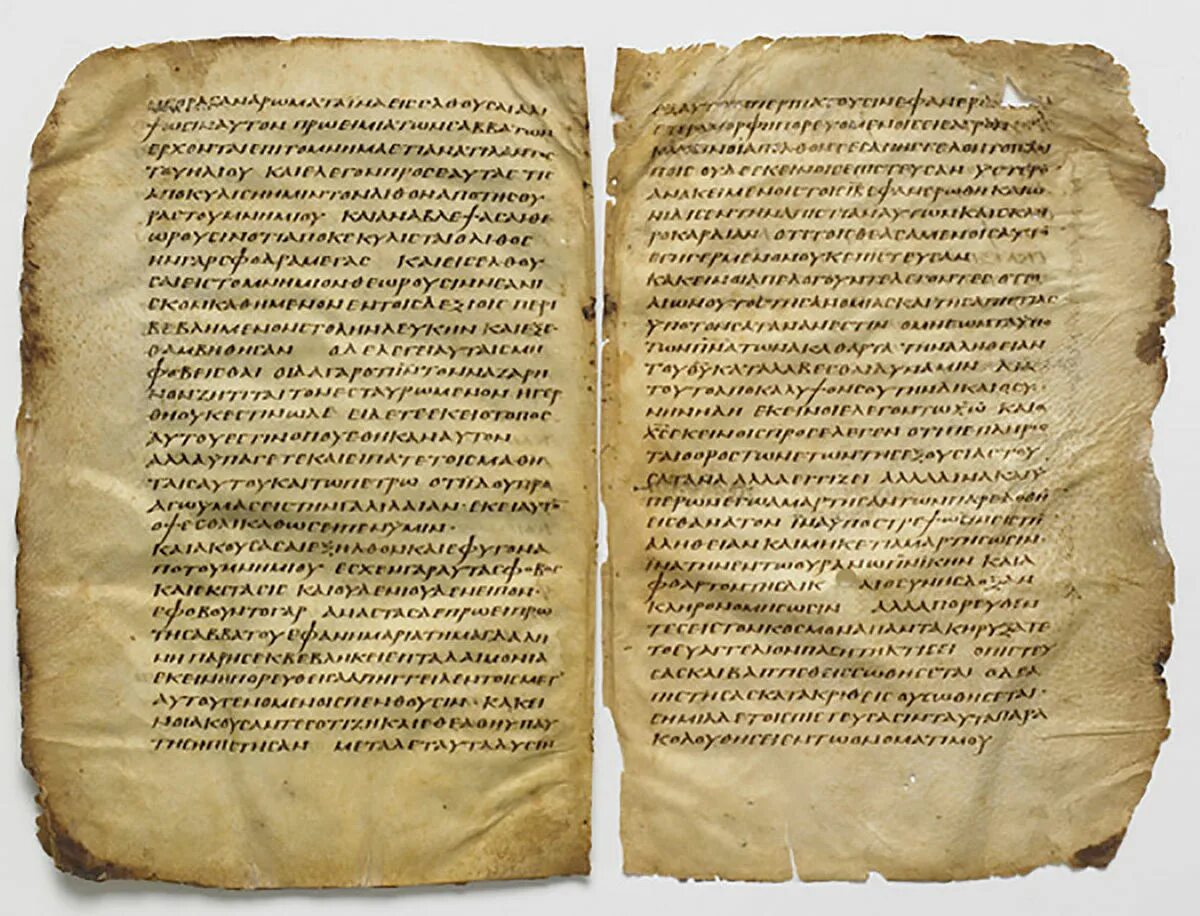 ΗΓΟΡΑСΑΝ ΑΡΩΜΑΤΑ ΪΝΑ ΕΙСΕΛΘΟΥСΑΙ ΑΛΙ
ΨΩСΙΝ ΑΥΤΟΝ ΠΡΩΕΙ ΜΙΑ ΤΩΝ СΑΒΒΑΤΩΝ
ΕΡΧΟΝΤΑΙ ΕΠΙ ΤΟ ΜΝΗΜΑ ΕΤΙ ΑΝΑΤΙΛΑΝΤΟС
ΤΟΥ ΗΛΙΟΥ ΚΑΙ ΕΛΕΓΟΝ ΠΡΟС ΕΑΥΤΑС ΤΙС
ΑΠΟΚΥΛΙСΗ ΗΜΙΝ ΤΟΝ ΛΙΘΟΝ ΑΠΟ ΤΗС ΘΥ
ΡΑС ΤΟΥ ΜΝΗΜΙΟΥ ΚΑΙ ΑΝΑΒΛΕΨΑСΑΙ ΘΕ
ΩΡΟΥСΙΝ ΟΤΙ ΑΠΟΚΕΚΥΛΙСΤΑΙ Ο ΛΙΘΟС
ΗΝ ΓΑΡ СΦΟΔΡΑ ΜΕΓΑС ΚΑΙ ΕΙСΕΛΘΟΥ
СΑΙ ΕΙС ΤΟ ΜΝΗΜΙΟΝ ΘΕΩΡΟΥСΙΝ ΝΕΑΝΙ
СΚΟΝ ΚΑΘΗΜΕΝΟΝ ΕΝ ΤΟΙС ΔΕΞΙΟΙС ΠΕΡΙ
ΒΕΒΛΗΜΕΝΟΝ СΤΟΛΗΝ ΛΕΥΚΗΝ ΚΑΙ ΕΞΕ
ΘΑΜΒΗΘΗСΑΝ Ο ΔΕ ΛΕΓΕΙ ΑΥΤΑΙС ΜΗ
ΦΟΒΕΙСΘΑΙ ΟΙΔΑ ΓΑΡ ΟΤΙ ΙΝ ΤΟΝ ΝΑΖΑΡΗ
ΝΟΝ ΖΗΤΙΤΑΙ ΤΟΝ ΕСΤΑΥΡΩΜΕΝΟΝ ΗΓΕΡ
ΘΗ ΟΥΚ ΕСΤΙΝ ΩΔΕ ΕΙΔΕΤΕ ΕΚΕΙ Ο ΤΟΠΟС
ΑΥΤΟΥ ΕСΤΙΝ ΟΠΟΥ ΕΘΗΚΑΝ ΑΥΤΟΝ
ΑΛΛΑ ΥΠΑΓΕΤΕ ΚΑΙ ΕΙΠΑΤΕ ΤΟΙС ΜΑΘΗ
ΤΑΙС ΑΥΤΟΥ ΚΑΙ ΤΩ ΠΕΤΡΩ ΟΤΙ ΪΔΟΥ ΠΡΟ
ΑΓΩ ΥΜΑС ΕΙС ΤΗΝ ΓΑΛΙΛΑΙΑΝ· ΕΚΕΙ ΑΥΤΟ
ΟΨΕСΘΑΙ ΚΑΘΩС ΕΙΠΕΝ ΥΜΙΝ·
ΚΑΙ ΑΚΟΥСΑСΑΙ ΕΞΗΛΘΟΝ ΚΑΙ ΕΦΥΓΟΝ Α
ΠΟ ΤΟΥ ΜΝΗΜΙΟΥ ΕСΧΕΝ ΓΑΡ ΑΥΤΑС ΦΟΒΟС
ΚΑΙ ΕΚСΤΑСΙС ΚΑΙ ΟΥΔΕΝΙ ΟΥΔΕΝ ΕΙΠΟΝ
ΕΦΟΒΟΥΝΤΟ ΓΑΡ ΑΝΑСΤΑС ΔΕ ΠΡΩΕΙ ΠΡΩ
ΤΗ СΑΒΒΑΤΟΥ ΕΦΑΝΗ ΜΑΡΙΑ ΤΗ ΜΑΓΔΑΛΗ
ΝΗ ΠΑΡ ΗС ΕΚΒΕΒΛΗΚΕΙ ΕΠΤΑ ΔΑΙΜΟΝΙΑ
ΕΚΕΙΝΗ ΠΟΡΕΥΘΕΙСΑ ΑΠΗΓΓΕΙΛΕΝ ΤΟΙС ΜΕΤ
ΑΥΤΟΥ ΓΕΝΟΜΕΝΟΙС ΠΕΝΘΟΥСΙ· ΚΑΚΕΙ
ΝΟΙ ΑΚΟΥСΑΝΤΕС ΟΤΙ ΖΗ ΚΑΙ ΕΘΕΑΘΗ ΥΠ ΑΥ
ΤΗС ΗΠΙСΤΗСΑΝ ΜΕΤΑ ΔΕ ΤΑΥΤΑ ΔΥСΙΝ
ΕΞ ΑΥΤΩΝ ΠΕΡΙΠΑΤΟΥСΙΝ ΕΦΑΝΕΡΩΘΗ ΕΝ
ΕΤΕΡΑ ΜΟΡΦΗ ΠΟΡΕΥΟΜΕΝΟΙС ΕΙС ΑΓΡΟΝ
ΚΑΚΕΙΝΟΙ ΑΠΕΛΘΟΝΤΕС ΑΠΗΓΓΕΛΟΝ ΤΟΙС ΛΟΙ
ΠΟΙС ΟΥΔΕ ΕΚΕΙΝΟΙС ΕΠΙСΤΕΥСΑΝ ΥСΤΕΡΟ
ΑΝΑΚΕΙΜΕΝΟΙС ΤΟΙС ΙΒ ΕΦΑΝΕΡΩΘΗ ΚΑΙ Ω
ΝΙΔΙСΕΝ ΤΗΝ ΑΠΙСΤΙΑΝ ΑΥΤΩΝ ΚΑΙ СΚΛΗ
ΡΟΚΑΡΔΙΑΝ ΟΤΙ ΤΟΙС ΘΕΑСΑΜΕΝΟΙС ΑΥΤΟ
ΕΓΗΓΕΡΜΕΝΟΝ ΟΥΚ ΕΠΙСΤΕΥСΑΝ
ΚΑΚΕΙΝΟΙ ΑΠΕΛΟΓΟΥΝΤΕ ΛΕΓΟΝΤΕС ΟΤΙ Ο
ΑΙΩΝ ΟΥΤΟС ΤΗС ΑΝΟΜΙΑС ΚΑΙ ΤΗС ΑΠΙСΤΙΑС
ΥΠΟ ΤΟΝ СΑΤΑΝΑΝ ΕСΤΙΝ Ο ΜΗ ΕΩΝ ΤΑ ΥΠΟ
ΤΩΝ ΠΝΑΤΩΝ ΑΚΑΘΑΡΤΑ ΤΗΝ ΑΛΗΘΕΙΑΝ
ΤΟΥ ΘΥ ΚΑΤΑΛΑΒΕСΘΑΙ ΔΥΝΑΜΙΝ ΔΙΑ
ΤΟΥΤΟ ΑΠΟΚΑΛΥΨΟΝ СΟΥ ΤΗΝ ΔΙΚΑΙΟСΥ
ΝΗΝ ΗΔΗ ΕΚΕΙΝΟΙ ΕΛΕΓΟΝ ΤΩ ΧΩ ΚΑΙ Ο
ΧС ΕΚΕΙΝΟΙС ΠΡΟСΕΛΕΓΕΝ ΟΤΙ ΠΕΠΛΗΡΩ
ΤΑΙ Ο ΟΡΟС ΤΩΝ ΕΤΩΝ ΤΗС ΕΞΟΥСΙΑС ΤΟΥ
СΑΤΑΝΑ ΑΛΛΑ ΕΓΓΙΖΕΙ ΑΛΛΑ ΔΙΝΑ ΚΑΙ Υ
ΠΕΡ ΩΝ ΕΓΩ ΑΜΑΡΤΗСΑΝΤΩΝ ΠΑΡΕΔΟΘΗ
ΕΙС ΘΑΝΑΤΟΝ ΪΝΑ ΥΠΟСΤΡΕΨΩСΙΝ ΕΙС ΤΗ
ΑΛΗΘΕΙΑΝ ΚΑΙ ΜΗΚΕΤΙ ΑΜΑΡΤΗСΩСΙΝ·
ΙΝΑ ΤΗΝ ΕΝ ΤΩ ΟΥΡΑΝΩ ΠΝΙΚΗΝ ΚΑΙ Α
ΦΘΑΡΤΟΝ ΤΗС ΔΙΚΑΙΟСΥΝΗС ΔΟΞΑΝ
ΚΛΗΡΟΝΟΜΗСΩСΙΝ ΑΛΛΑ ΠΟΡΕΥΘΕΝ
ΤΕС ΕΙС ΤΟΝ ΚΟСΜΟΝ ΑΠΑΝΤΑ ΚΗΡΥΞΑΤΕ
ΤΟ ΕΥΑΓΓΕΛΙΟΝ ΠΑСΗ ΤΗ ΚΤΙСΕΙ Ο ΠΙСΤΕΥ
СΑС ΚΑΙ ΒΑΠΤΙСΘΕΙС СΩΘΗСΕΤΑΙ Ο ΔΕ Α
ΠΙСΤΗСΑС ΚΑΤΑΚΡΙΘΕΙС ΟΥ СΩΘΗСΕΤΑΙ·
СΗΜΙΑ ΔΕ ΤΟΙС ΠΙСΤΕΥСΑСΙΝ ΤΑΥΤΑ ΠΑΡΑ
ΚΟΛΟΥΘΗСΕΙ ΕΝ ΤΩ ΟΝΟΜΑΤΙ ΜΟΥ